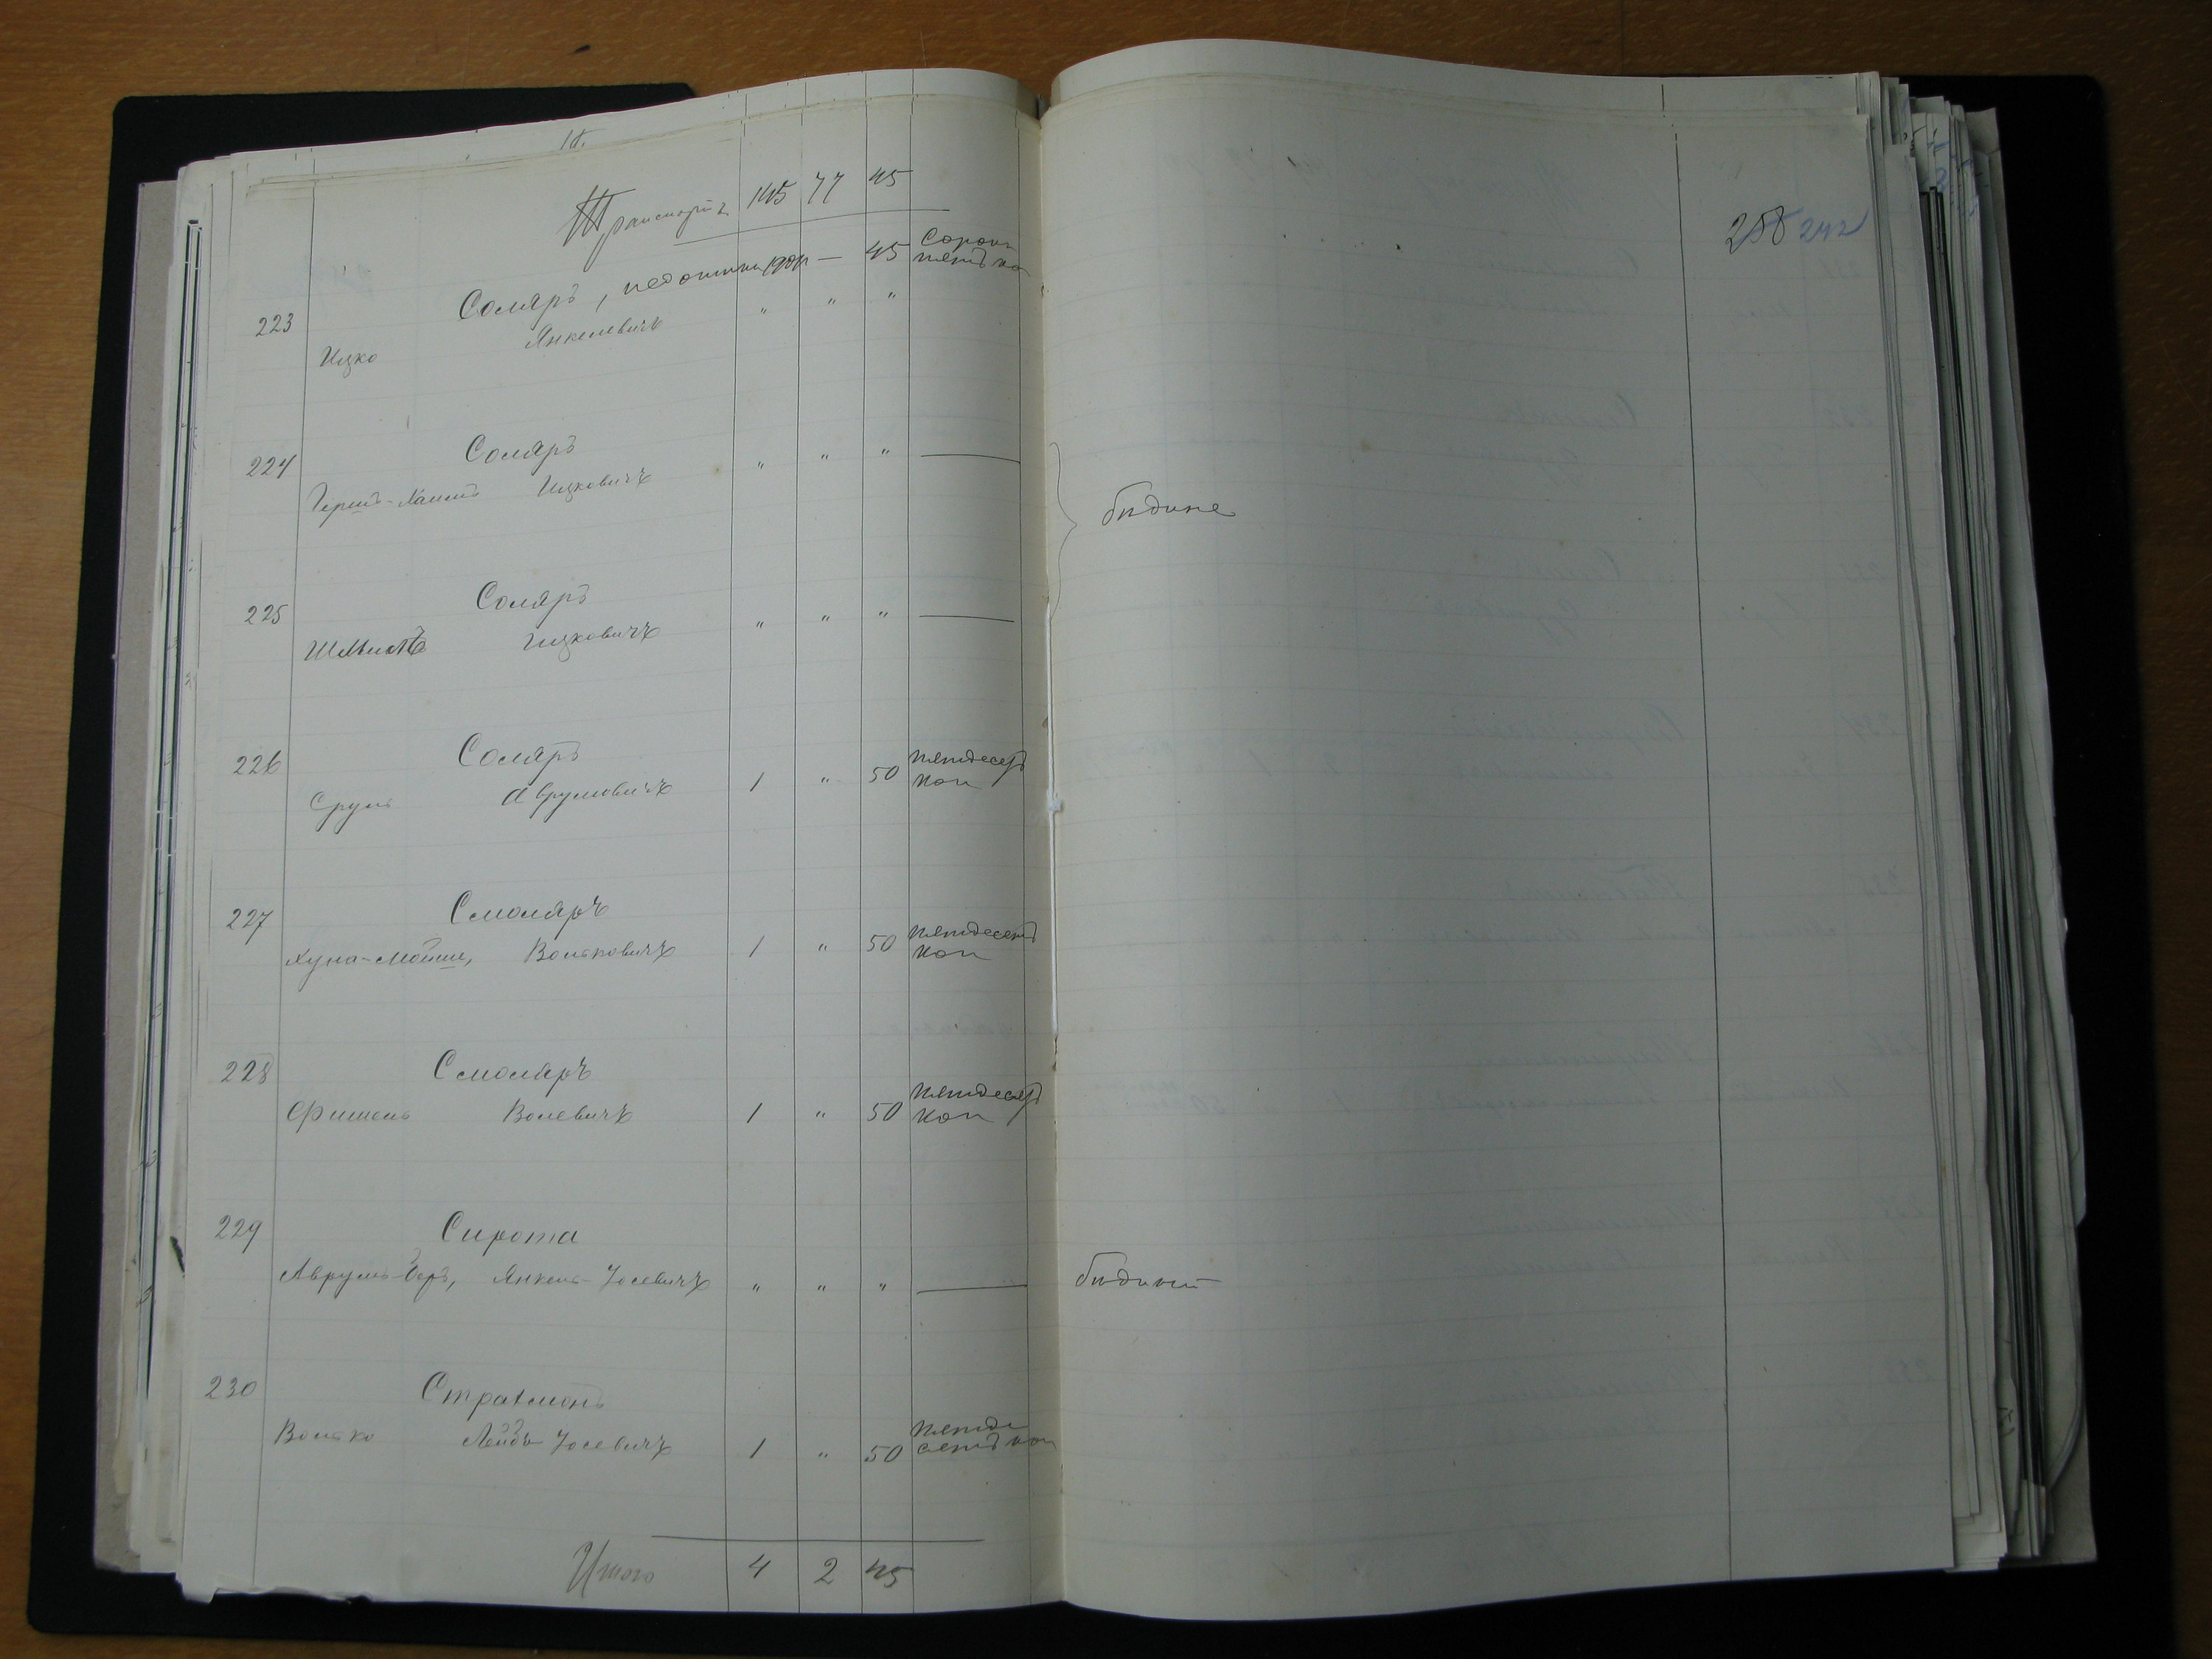 18.
Транспортъ 145 77 45
223 Соляръ, недоимки 1901 г — 45 Сорок
пять ко
Ицко Янкелевичъ " " "
224 Соляръ " " " —
Гершъ-Хаимъ Ицковичъ
бѣдные
225 Соляръ " " " —
Шмилъ Ицковичъ
226 Соляръ
Сруль Аврумовичъ 1 " 50 пятдесят
коп
227 Смоляръ
Хуна-Мойше, Вольковичъ 1 " 50 пятдесят
коп
228 Смоляръ
Фишель Волевичъ 1 " 50 пятдесят
коп
229 Сирота
Аврумъ-Беръ, Янкель-Іосевичъ " " " —
бѣдный
230 Страхмонъ
Волько Лейбъ-Іосевичъ 1 " 50 пятде
сятъ коп
Итого 4 2 45
258 242